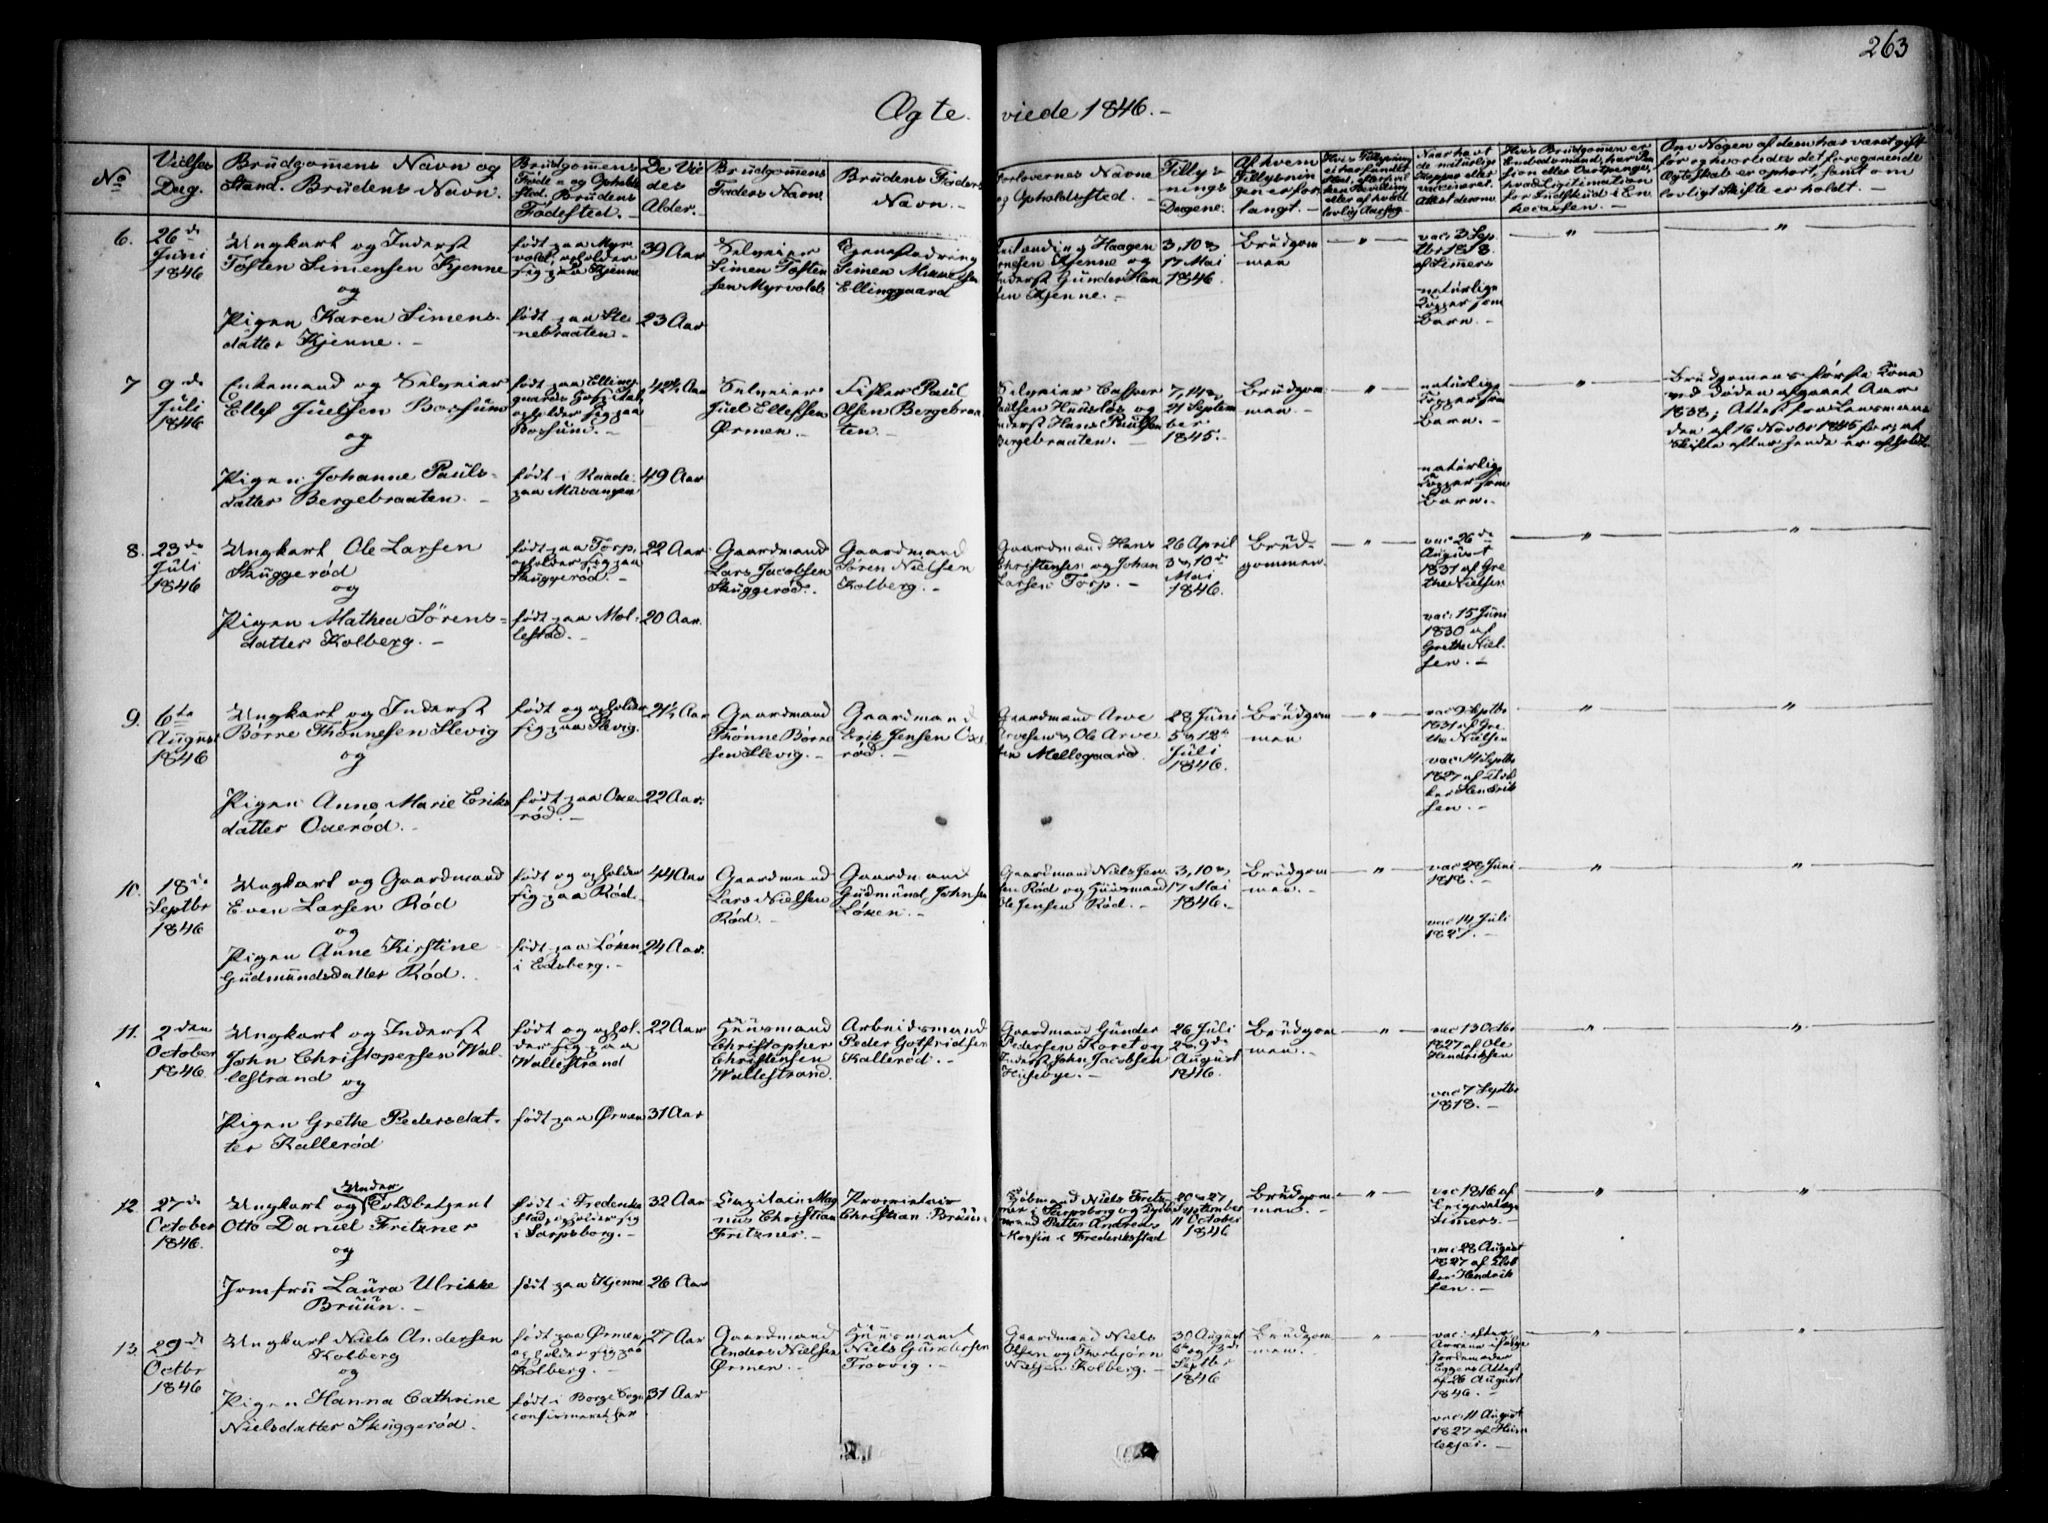 263
Ægte
viede 1846. -
No
Vielses
Dag.
Brudgommens Navn og
Stand. Brudens Navn.
Brudgommens
Føde- og Opholds
Sted. Brudens
Fødested. -
De Vie
des
Alder. -
Brudgommens
Faders Navn.
Brudens Faders
Navn. -
Forlovernes Navne
og Opholdssted. -
Tillys-
nings
Dagene.
Af hvem
Tillysnin
gen er for-
langt. -
6.
26de
Juni
1846
Ungkarl og Inderst
Tosten Simensen Kjenne
og
Pigen Karen Simens-
datter Kjenne. -
født paa Myr
vold, opholder
sig paa Kjenne
født paa Ste
nebraaten. -
39 Aar
23 Aar
Selveier
Simen Tosten
sen Myrvold
Simen
Ellinggaard
Haagen
Kjenne og
Inderst Gunder Han
sen Kjenne. -
3, 10 og
17 Mai
1846.
Brudgom
men
"
vac: 3 Sep
tbr 1818
af Simers
naturlige
Kopper som
Barn. -
"
"
7
9de
Juli
1846
Enkemand og Selveier
Ellef Juelsen Borsum
og
Pigen Johanne Pauls-
datter Bergebraaten. -
født paa Elling
gaards
opholder sig paa
Borsum. -
født i Raade
paa
42½ Aar
49 Aar
Selveier
Juel Ellefsen
Ørmen. -
Fisker Paul
Olsen Bergebraa
ten. -
Selveier Casper
Paulsen Huseløs og
Inderst Hans Paulsen
Bergebraaten. -
7, 14 og
21 Septem
ber
1845.
Brudgom
men. -
"
naturlige
Kopper som
Barn. -
naturlige
Kopper som
Barn. -
"
Brudgomens første Kone
ved Døden afgaaet Aar
1838; Attest fra Lensman
den af 16 Novbr 1845 for, at
Skifte efter hende er afholdt.
8.
23de
Juli
1846
Ungkarl Ole Larsen
Skuggerød
og
Pigen Mathea Sørens-
datter Kolberg. -
født paa Torp,
opholder sig paa
Skuggerød. -
født paa Mol-
lestad. -
22 Aar
20 Aar.
Gaardmand
Lars Jacobsen
Skuggerød.
Gaardmand
Søren Nielsen
Kolberg. -
Gaardmand Hans
Christensen og Johan
Larsen Torp. -
26 April
3 og 10de
Mai
1846.
Brud-
gommen.
"
vac 26de
August
1831 af Gre
the Nielsen
vac: 15 Juni
1830 af
Grethe Niel-
sen. -
"
"
9.
6te
August
1846
Ungkarl og Inderst
Børre Thønnesen Slevig
og
Pigen Anne Marie Eriks
datter Oxerød. -
født og opholder
sig paa Slevig.
født paa Oxe
rød. -
21½ Aar
22 Aar.
Gaardmand
Thønne Børre
sen Slevig. -
Gaardmand
Erik Jensen Oxe
rød. -
Gaardmand Arve
Arvesen og Ole Arve
sen Mellegaard.
28 Juni
5 og 12te
Juli
1846.
Brudgom
men
"
1831 af Gre
the Nielsen
vac: 14 Septbr
1827 af
Hendrik
sen. -
"
"
10.
18de
Septbr
1846
Ungkarl og Gaardmand
Even Larsen Rød
og
Pigen Anne Kirstine
Gudmundsdatter Rød. -
født og opholder
sig paa Rød. -
født paa Løken
i Edsberg. -
44 Aar
24 Aar.
Gaardmand
Lars Nielsen
Rød. -
Gaardmand
Gudmund Johnsen
Løken. -
Gaardmand Niels Jen
sen Rød og Huusmand
Ole Jensen Rød. -
3, 10 og
17 Mai
1846.
Brudgom
men. -
"
vac 28 Juni
1818. -
vac 14 Juli
1827. -
"
"
11.
2den
October
1846.
Ungkarl og Inderst
John Christopersen Wal-
lestrand
og
Pigen Grethe Pedersdat-
ter Kallerød
født og ophol-
der sig paa
Wallestrand
født paa Ørmen
22 Aar
31 Aar
Huusmand
Christopher
Christensen
Wallestrand.
Arbeidsmand
Peder Gotfridsen
Kallerød. -
Gaardmand Gunder
Pedersen Koret og
Inderst John Jacobsen
Husebye. -
26 Juli
2 og 9de
August
1846.
Brudgom
men. -
"
vac 13 Octbr
1827 af Ole
Hendriksen
vac 7 Septbr
1818. -
"
"
12.
27de
October
1846.
Under
Ungkarl og Toldbetjent
Otto Daniel Fritzner
og
Jomfru Laura Ulrikke
Bruun. -
født i Frederiks
stad, opholder sig
i Sarpsborg. -
født paa Kjenne
32 Aar
26 Aar
Capitain Mag
nus Christian
Fritzner. -
Proprietair
Christian Bruun. -
Kjøbmand Niels Fritz
ner i Sarpsborg og
Petter Andreas
i Frederiksstad
20 og 27
September
11 October
1846
Brudgom
men. -
"
vac 1816 af
Simers. -
vac 28 August
1827 af
Hendrik
sen. -
"
"
13.
29de
Octbr
1846
Ungkarl Niels Andersen
Kolberg
og
Pigen Hanna Cathrine
Nielsdatter Skuggerød.
født paa Ørmen
opholder sig paa
Kolberg. -
født i Borge Sogn
confirmeret her
27 Aar
31 Aar
Gaardmand
Anders Nielsen
Ørmen. -
Huusmand
Niels Gundersen
Torsvig. -
Gaardmand Niels
Olsen og Thorbjørn
Nielsen Kolberg. -
30 August
6te og 13de
Septbr
1846
Brudgom
men. -
"
vac: efter
Jordemoder
Eggers Attest
af 26 August
1846. -
vac: 11 August
1827 af
"
"